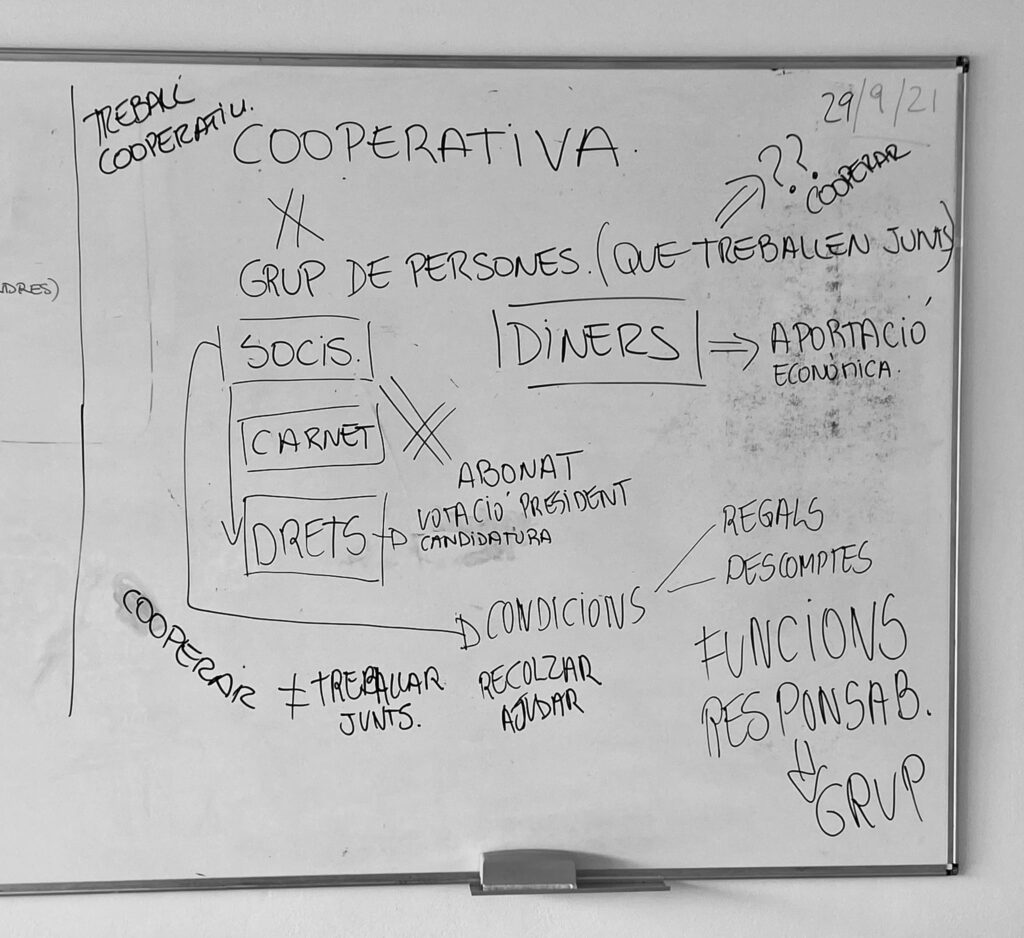 29/9/21
TREBALL
COOPERATIU.
COOPERATIVA.
??
COOPERAR
GRUP DE PERSONES. (QUE TREBALLEN JUNTS)
SOCIS.
DINERS ⇒ APORTACIÓ
ECONÒMICA.
CARNET
ABONAT
DRETS → VOTACIÓ PRESIDENT
CANDIDATURA
REGALS
DESCOMPTES
CONDICIONS
COOPERAR ≠ TREBALLAR
JUNTS.
RECOLZAR
AJUDAR
FUNCIONS
RESPONSAB.
GRUP